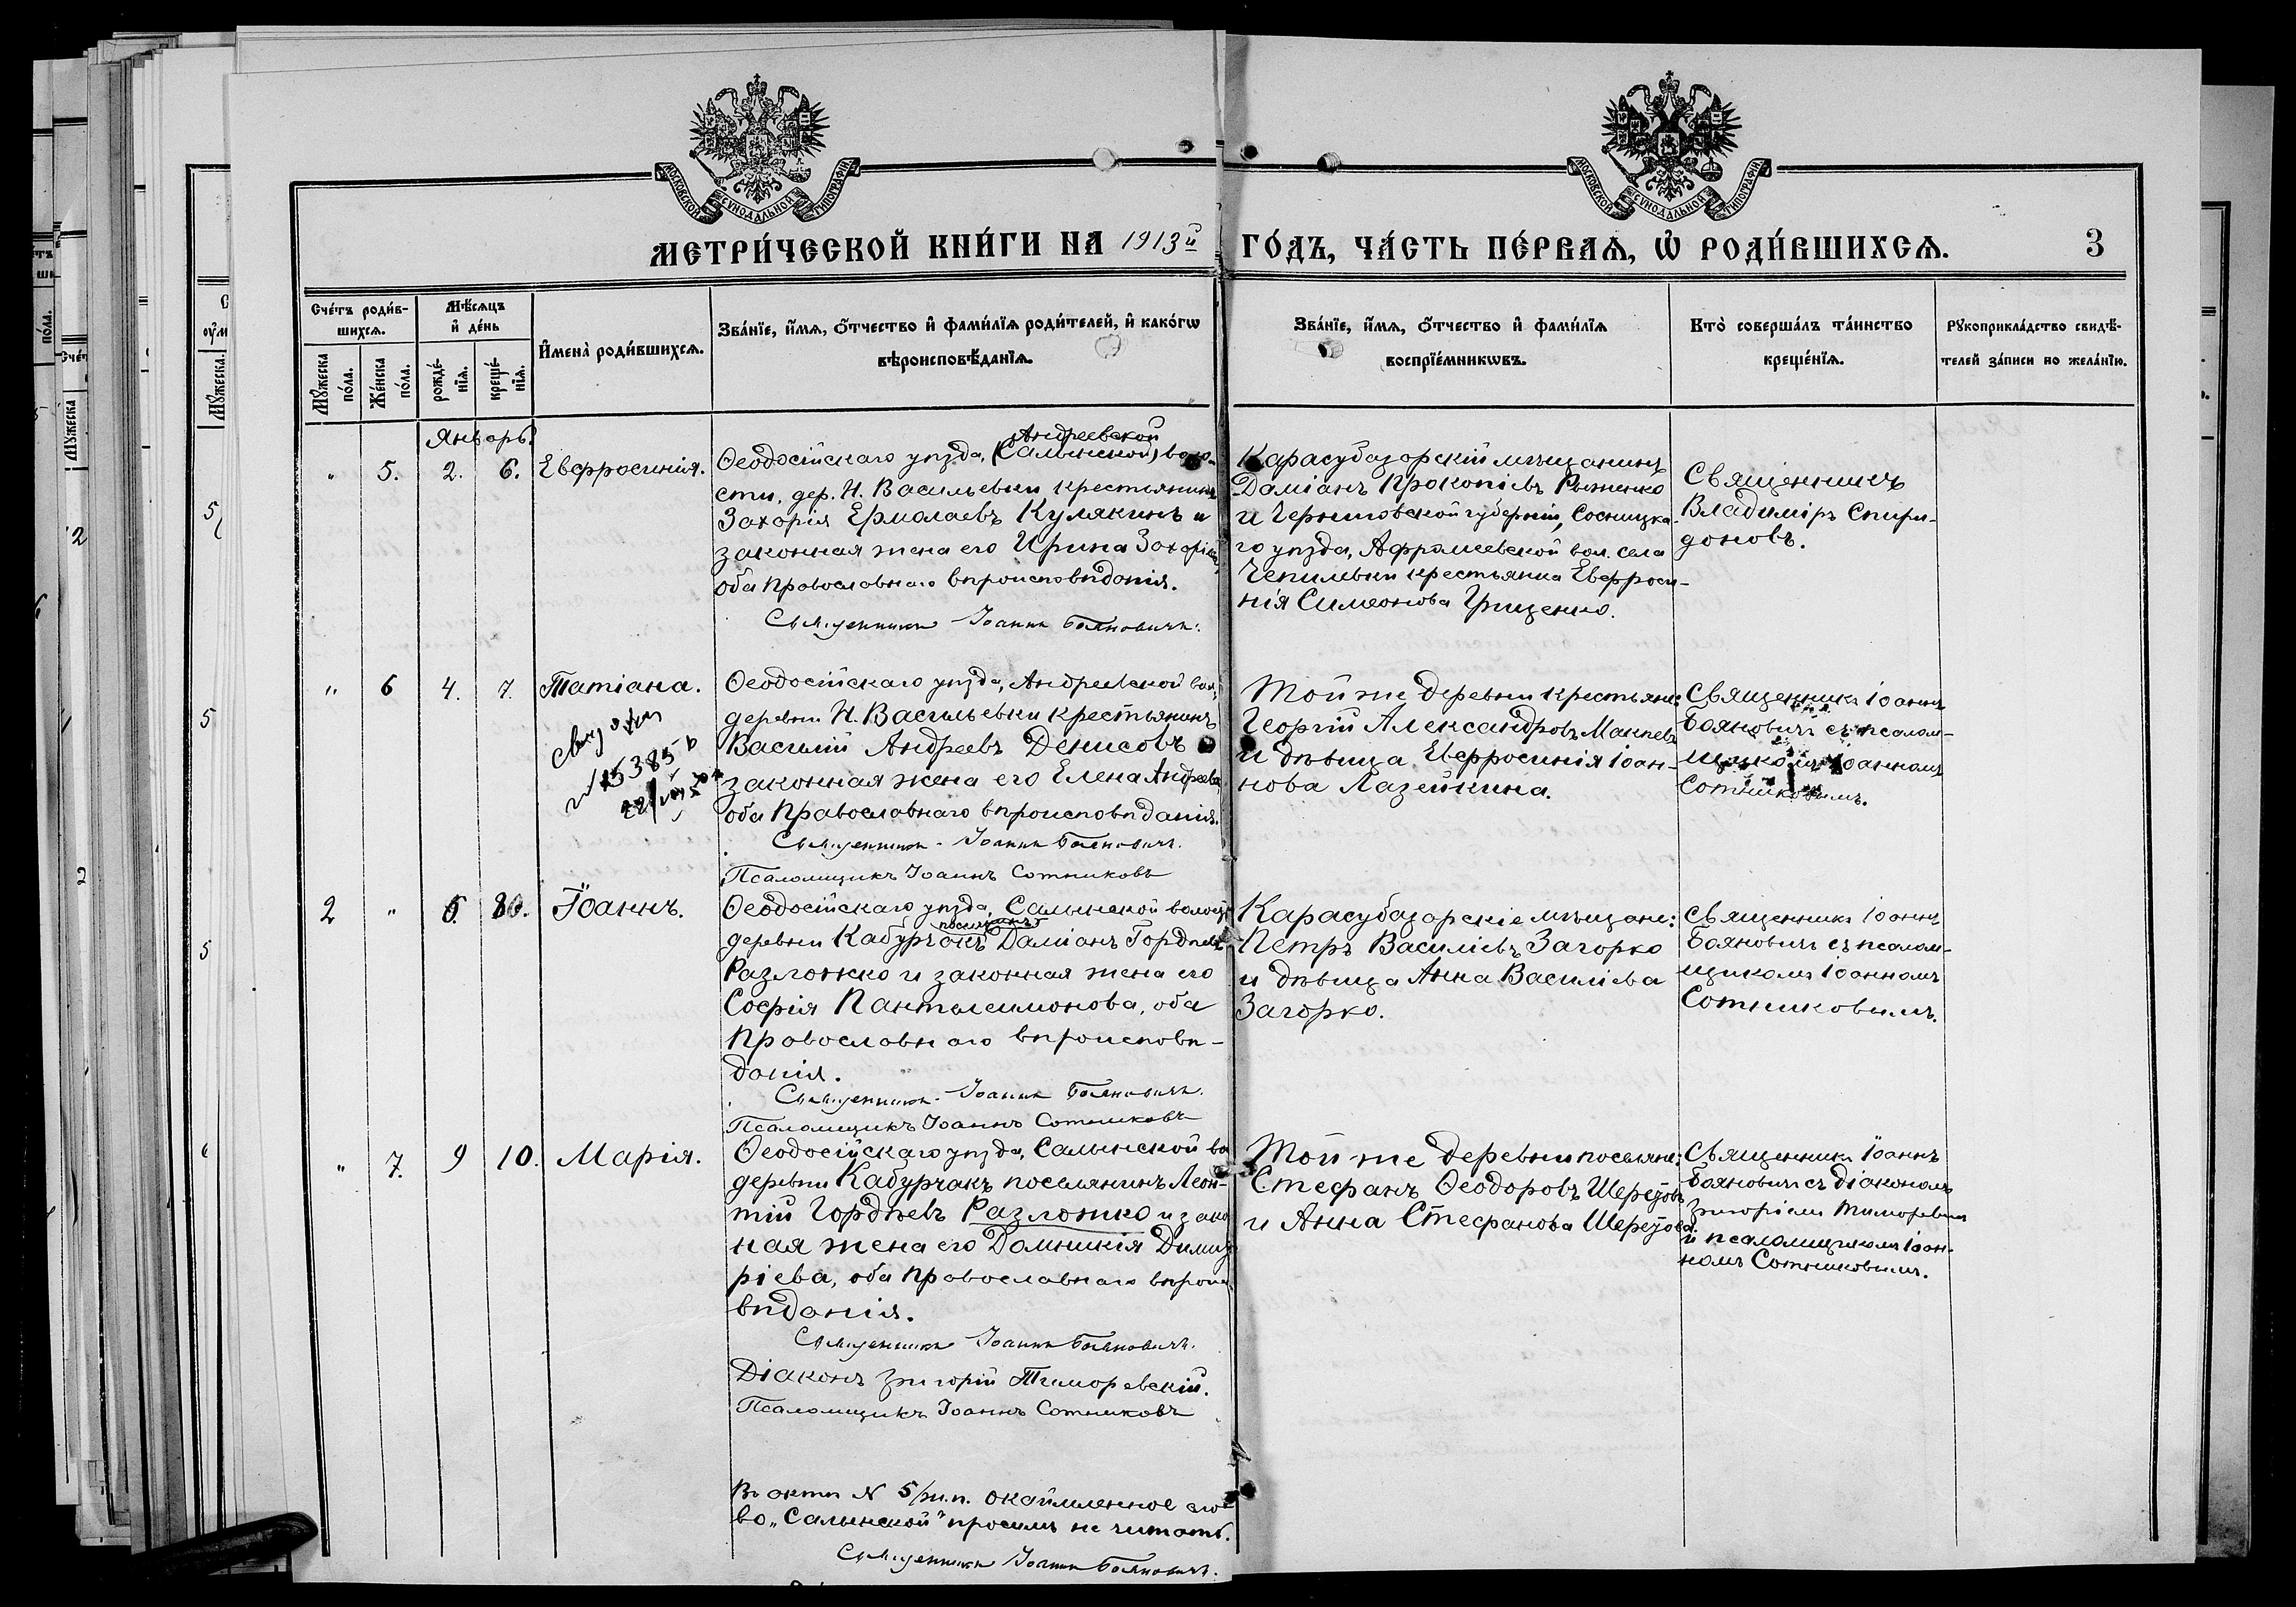 МОСКОВСКОЙ СѴНОДАЛЬНОЙ ТИПОГРАФІИ
МОСКОВСКОЙ СѴНОДАЛЬНОЙ ТИПОГРАФІИ
МЕТРИ́ЧЕСКОЙ КНИ́ГИ НА 1913й ГО́ДЪ, ЧА́СТЬ ПЕ́РВАѦ, Ѡ҆ РОДИ́ВШИХСѦ. 3
Сче́тъ роди́в-
шихсѧ.
Мѣ́сѧцъ
и҆ де́нь
Мꙋ́жеска
по́ла.
Же́нска
по́ла.
рожде́-
нїѧ.
креще́-
нїѧ.
И҆мена̀ роди́вшихсѧ.
Зва́нїе, и҆́мѧ, ѻ҆́тчество и҆ фами́лїѧ роди́телей, и҆ како́гѡ
вѣроисповѣ́данїѧ.
Зва́нїе, и҆́мѧ, ѻ҆́тчество и҆ фами́лїѧ
воспрїе́мникѡвъ.
Кто̀ соверша́лъ та́инство
креще́нїѧ.
Рꙋкоприкла́дство свидѣ́-
телей за́писи по жела́нїю.
Январь.
" 5. 2. 6. Евфросинія.
Андреевской
Ѳеодосійскаго уѣзда, (Салынской) воло-
сти, дер. Н. Васильевки крестьянинъ
Захарія Ермолаевъ Кулякинъ и
законная жена его Ирина Захаріева
оба православнаго вѣроисповѣданія.
Священникъ Іоаннъ Бояновичъ.
Карасубазарскій мѣщанинъ
Даміанъ Прокопіевъ Рыженко
и Черниговской губерніи, Сосницка-
го уѣзда, вол. села
крестьянка Евфроси-
нія Симеонова Грищенко.
Священникъ
Владиміръ Спири-
доновъ.
" 6 4. 7. Татіана.
№ 15385
Ѳеодосійскаго уѣзда, Андреевской вол,
деревни Н. Васильевки крестьянинъ
Василій Андреевъ Денисовъ и
законная жена его Елена Андреева
оба православнаго вѣроисповѣданія.
Священникъ Іоаннъ Бояновичъ.
Псаломщикъ Іоаннъ Сотниковъ
Той же деревни крестьяне:
Георгій Александровъ
и дѣвица Евфросинія Іоан-
нова Лазейкина.
Священникъ Іоаннъ
Бояновичъ съ псалом-
щикомъ Іоанномъ
Сотниковымъ.
2 " 10. Іоаннъ.
Ѳеодосійскаго уѣзда, Салынской волости
поселянинъ
деревни Кабурчакъ Даміанъ Гордѣевъ
Разложко и законная жена его
Софія Пантелеимонова, оба
православнаго вѣроисповѣ-
данія.
Священникъ Іоаннъ Бояновичъ.
Псаломщикъ Іоаннъ Сотниковъ
Карасубазарскіе мѣщане:
Петръ Василіевъ Загорко
и дѣвица Анна Василіева
Загорко.
Священникъ Іоаннъ
Бояновичъ съ псалом-
щикомъ Іоанномъ
Сотниковымъ.
" 7. 9 10. Марія.
Ѳеодосійскаго уѣзда, Салынской во
деревни Кабурчакъ поселянинъ Леон-
тій Гордѣевъ Разложко и закон
ная жена его Домникія Димит
ріева, оба православнаго вѣроис
вѣданія.
Священникъ Іоаннъ Бояновичъ.
Діаконъ Григорій Тиморевскій.
Псаломщикъ Іоаннъ Сотниковъ
Той же деревни поселяне:
Стефанъ Ѳеодоровъ
и Анна Стефанова
Священникъ Іоаннъ
Бояновичъ съ діакономъ
Григоріемъ
и псаломщикомъ Іоан-
номъ Сотниковымъ.
Въ актѣ N 5/ж.п. окаймленное сло-
во „Салынской" просимъ не читать.
Священникъ Іоаннъ Бояновичъ.